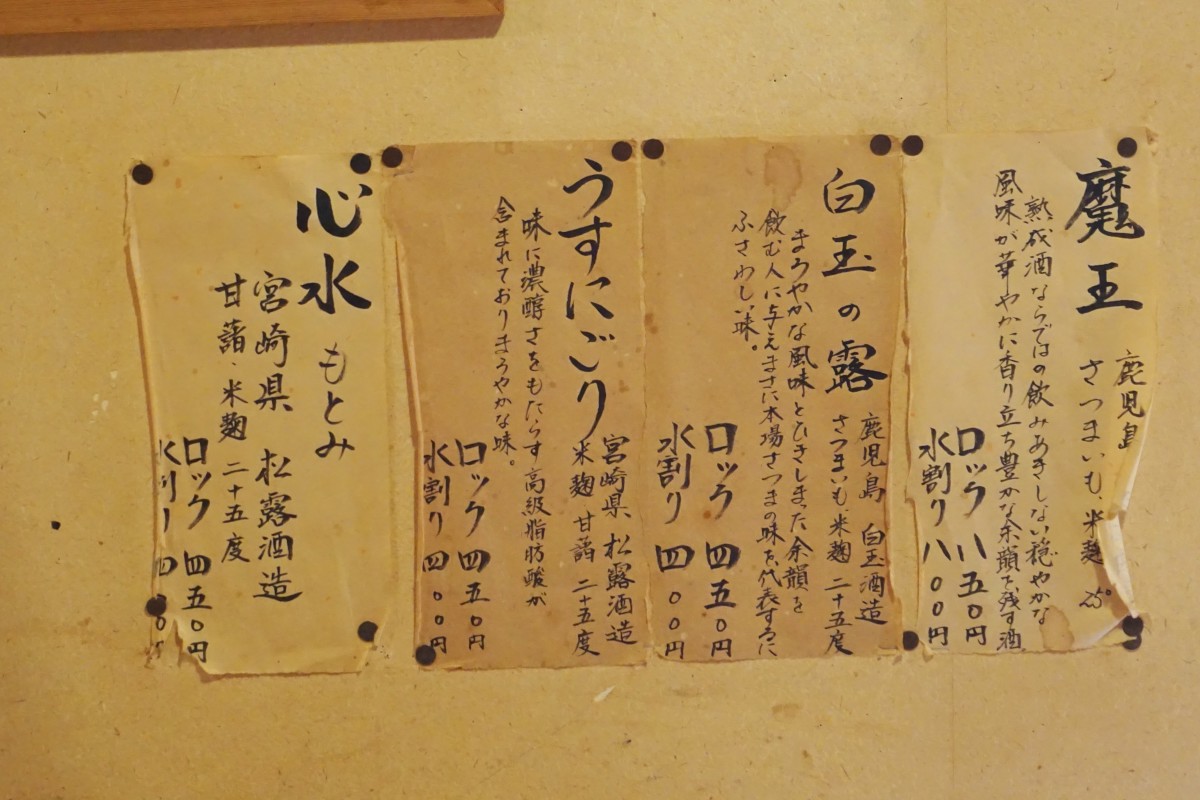 魔王
鹿児島
さつまいも、米麹 25°
熟成酒ならではの飲みあきしない穏やかな
風味が華やかに香り立ち豊かな余韻を残す酒
ロック 八五〇円
水割り 八〇〇円
白玉の露
鹿児島 白玉酒造
さつまいも、米麹 二十五度
まろやかな風味とひきしまった余韻を
飲む人に与えまさに本場さつまの味を代表するに
ふさわしい味。
ロック 四五〇円
水割り 四〇〇円
うすにごり
宮崎県 松露酒造
米麹 甘藷 二十五度
味に濃醇さをもたらす高級脂肪酸が
含まれておりまろやかな味。
ロック 四五〇円
水割り 四〇〇円
心水 もとみ
宮崎県 松露酒造
甘藷・米麹 二十五度
ロック 四五〇円
水割り 四〇